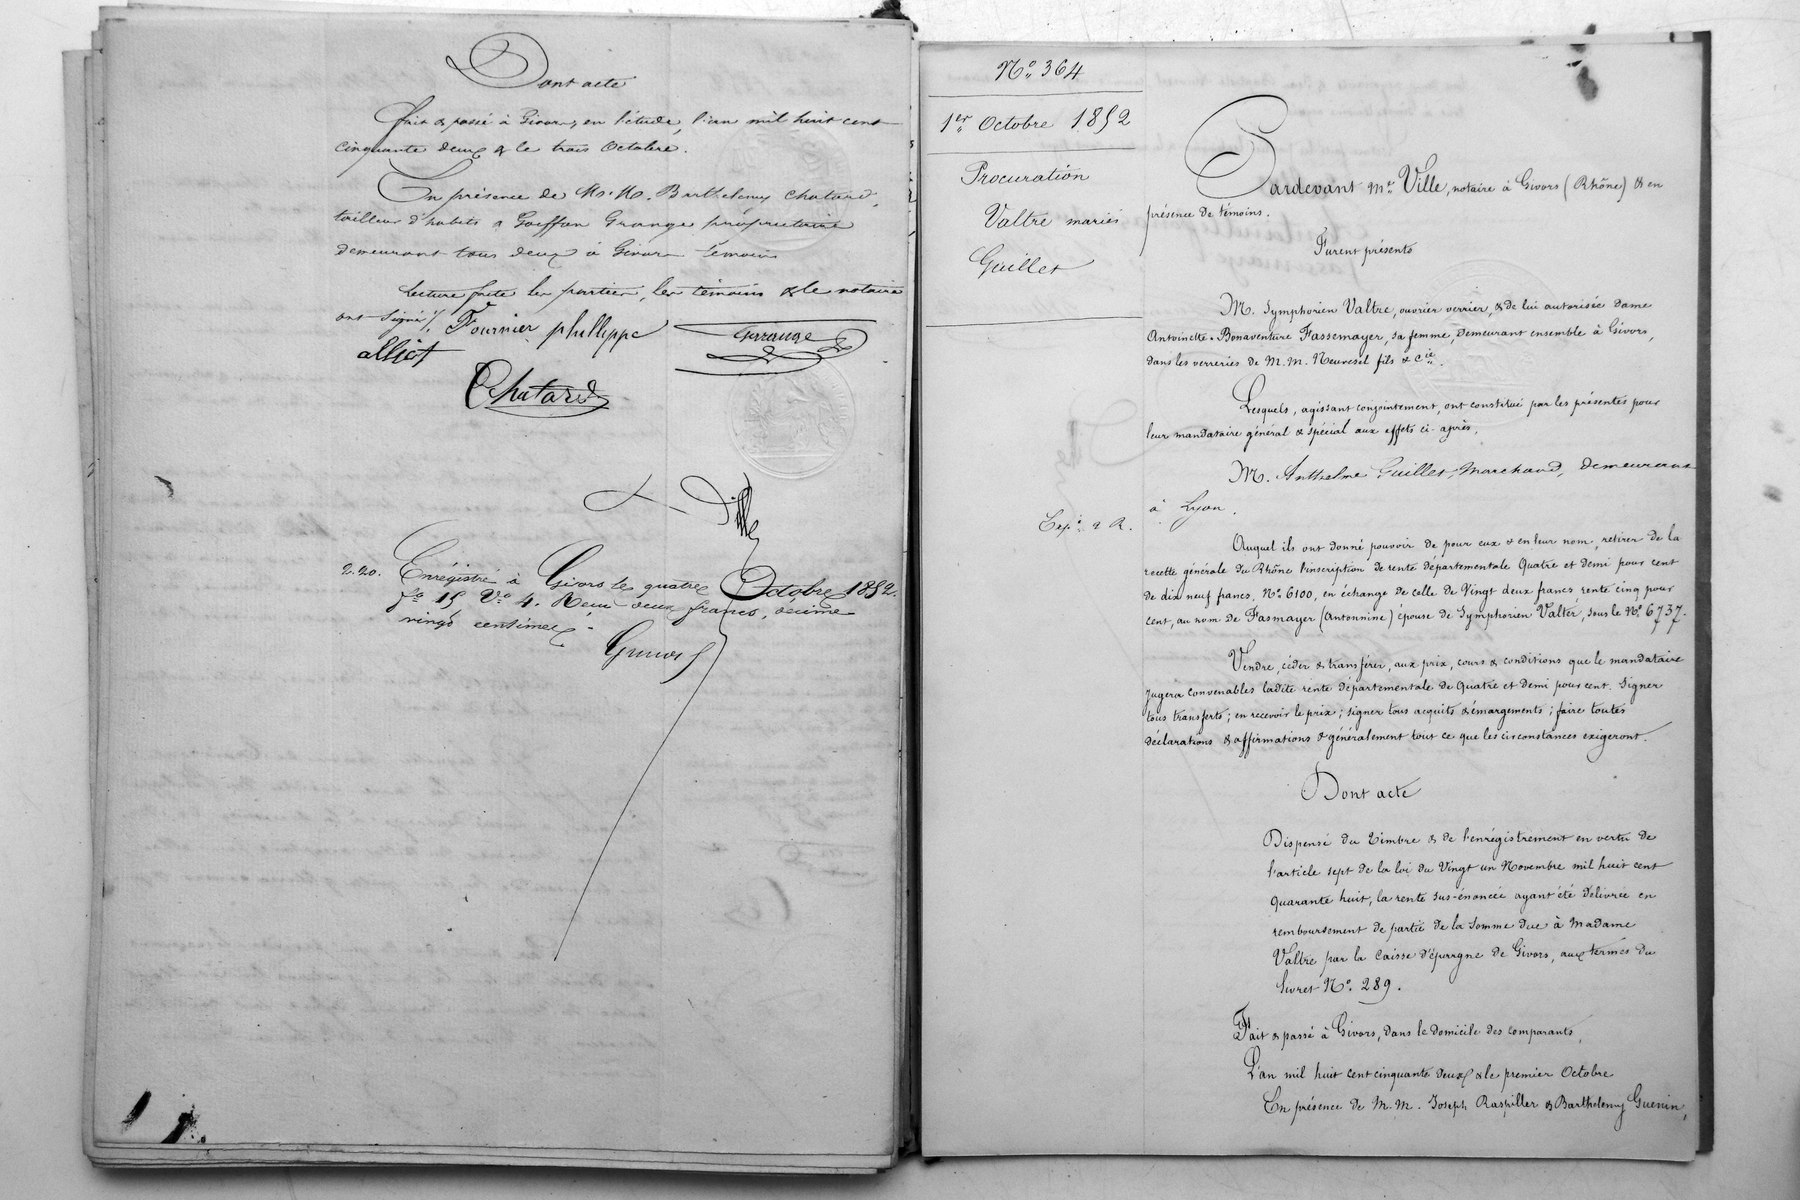 Dont acte
fait & passé à Givors, en l'étude, l'an mil huit cent
cinquante deux & le trois Octobre.
En présence de M. M. Barthélemy Chatard,
tailleur d'habits & Goiffon Grange propriétaire
demeurant tous deux à Givors témoins
Lecture faite les parties, les témoins & le notaire
ont signé ./. Fournier phillippe Garrange
elliot
Chatard
Ville
2.20. Enrégistré à Givors le quatre Octobre 1852.
fo 15 Vo 4. Reçu deux francs, décime
vingt centimes.
No 364
1er Octobre 1852
Procuration
Valtre mariés
Guillet
Expn & R.
Pardevant Me Ville, notaire à Givors (Rhône) & en
présence de témoins.
Furent présents
M. Symphorien Valtre, ouvrier verrier, & de lui autorisée dame
Antoinette-Bonaventure Fassemayer, sa femme, demeurant ensemble à Givors,
dans les verreries de M. M. Neuvesel fils & Cie.
Lesquels, agissant conjointement, ont constitué par les présentes pour
leur mandataire général & spécial aux effets ci-après,
M. Anthelme Guillet, Marchand, demeurant
à Lyon.
Auquel ils ont donné pouvoir de pour eux & en leur nom, retirer de la
recette générale du Rhône l'inscription de rente départementale Quatre et demi pour cent
de dix neuf francs, No 6100, en échange de celle de Vingt deux francs rente cinq pour
cent, au nom de Fasmayer (Antonnine) épouse de Symphorien Valter, sous le No 6737.
Vendre, céder & transférer, aux prix, cours & conditions que le mandataire
jugera convenables ladite rente départementale de Quatre et demi pour cent. Signer
tous transferts; en recevoir le prix; signer tous acquits & émargements; faire toutes
déclarations & affirmations & généralement tout ce que les circonstances exigeront.
Dont acte
Dispensé du timbre & de l'enrégistrement en vertu de
l'article sept de la loi du Vingt un Novembre mil huit cent
quarante huit, la rente sus-énoncée ayant été délivrée en
remboursement de partie de la somme due à Madame
Valtre par la caisse d'épargne de Givors, aux termes du
livret No. 289.
Fait & passé à Givors, dans le domicile des comparants,
L'an mil huit cent cinquante deux & le premier Octobre
En présence de M. M. Joseph Raspiller & Barthelemy Guenin,